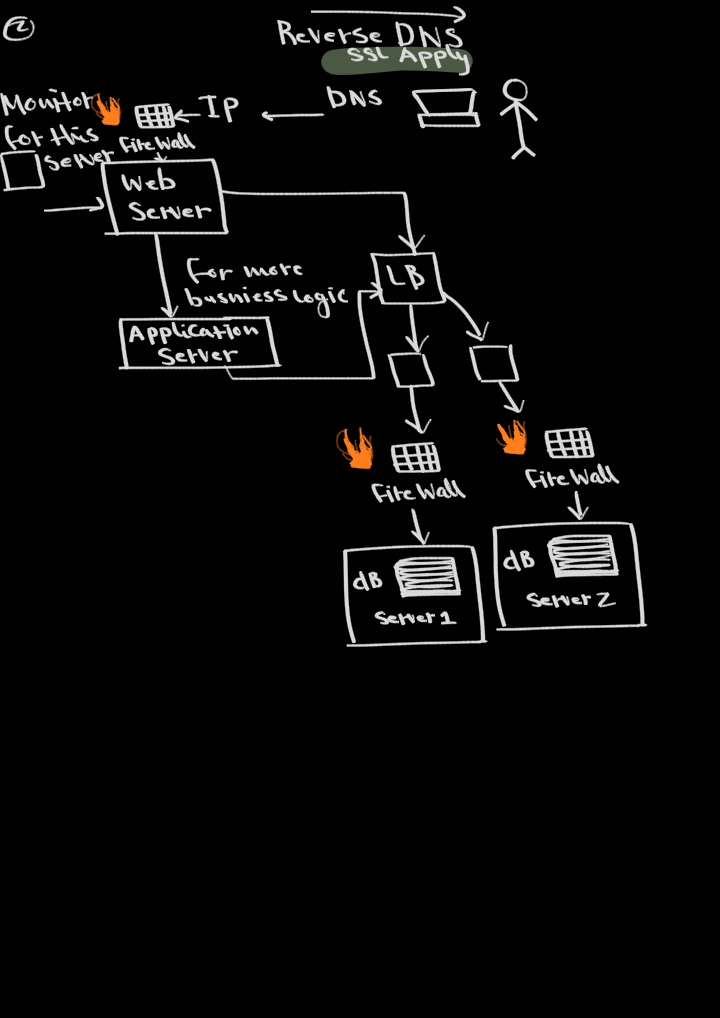 2
Reverse DNS
SSL Apply
Monitor
for this
server
IP
DNS
Firewall
Web
Server
For more
busniess logic
LB
Application
Server
Firewall
Firewall
dB
Server 1
dB
Server 2